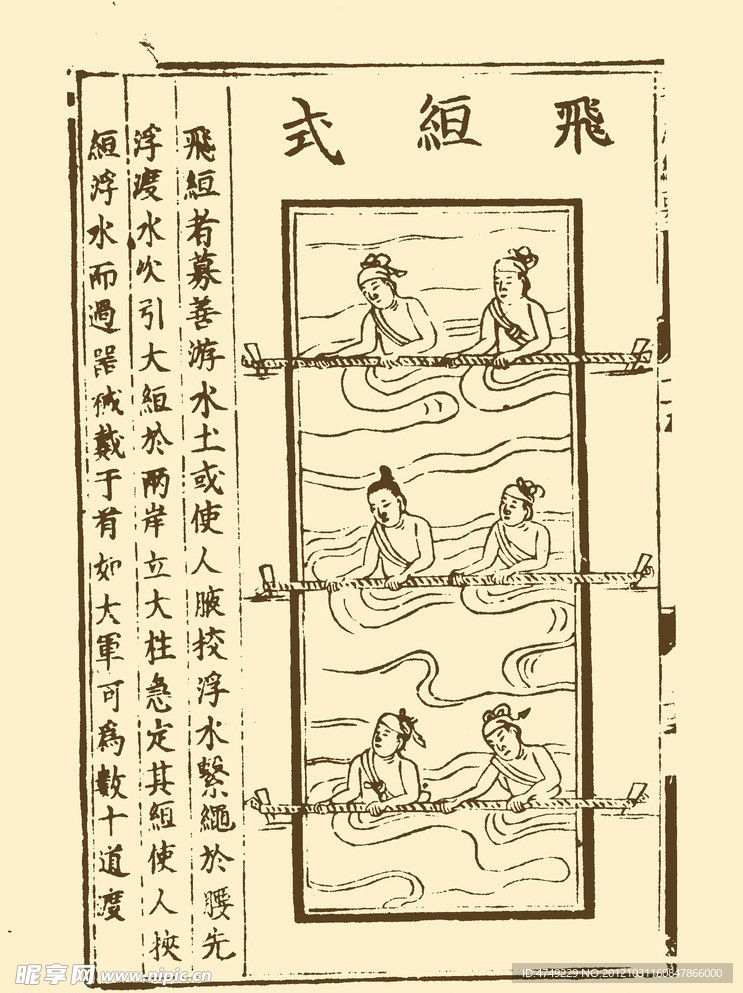 飛絙式
飛絙者募善游水士或使人腋挍浮水繫繩於腰先
浮渡水次引大絙於兩岸立大柱急定其絙使人挾
絙浮水而過器械戴于首如大軍可為數十道渡
昵享网 www.nipic.cn
ID:4749229 NO:20121031160847866000